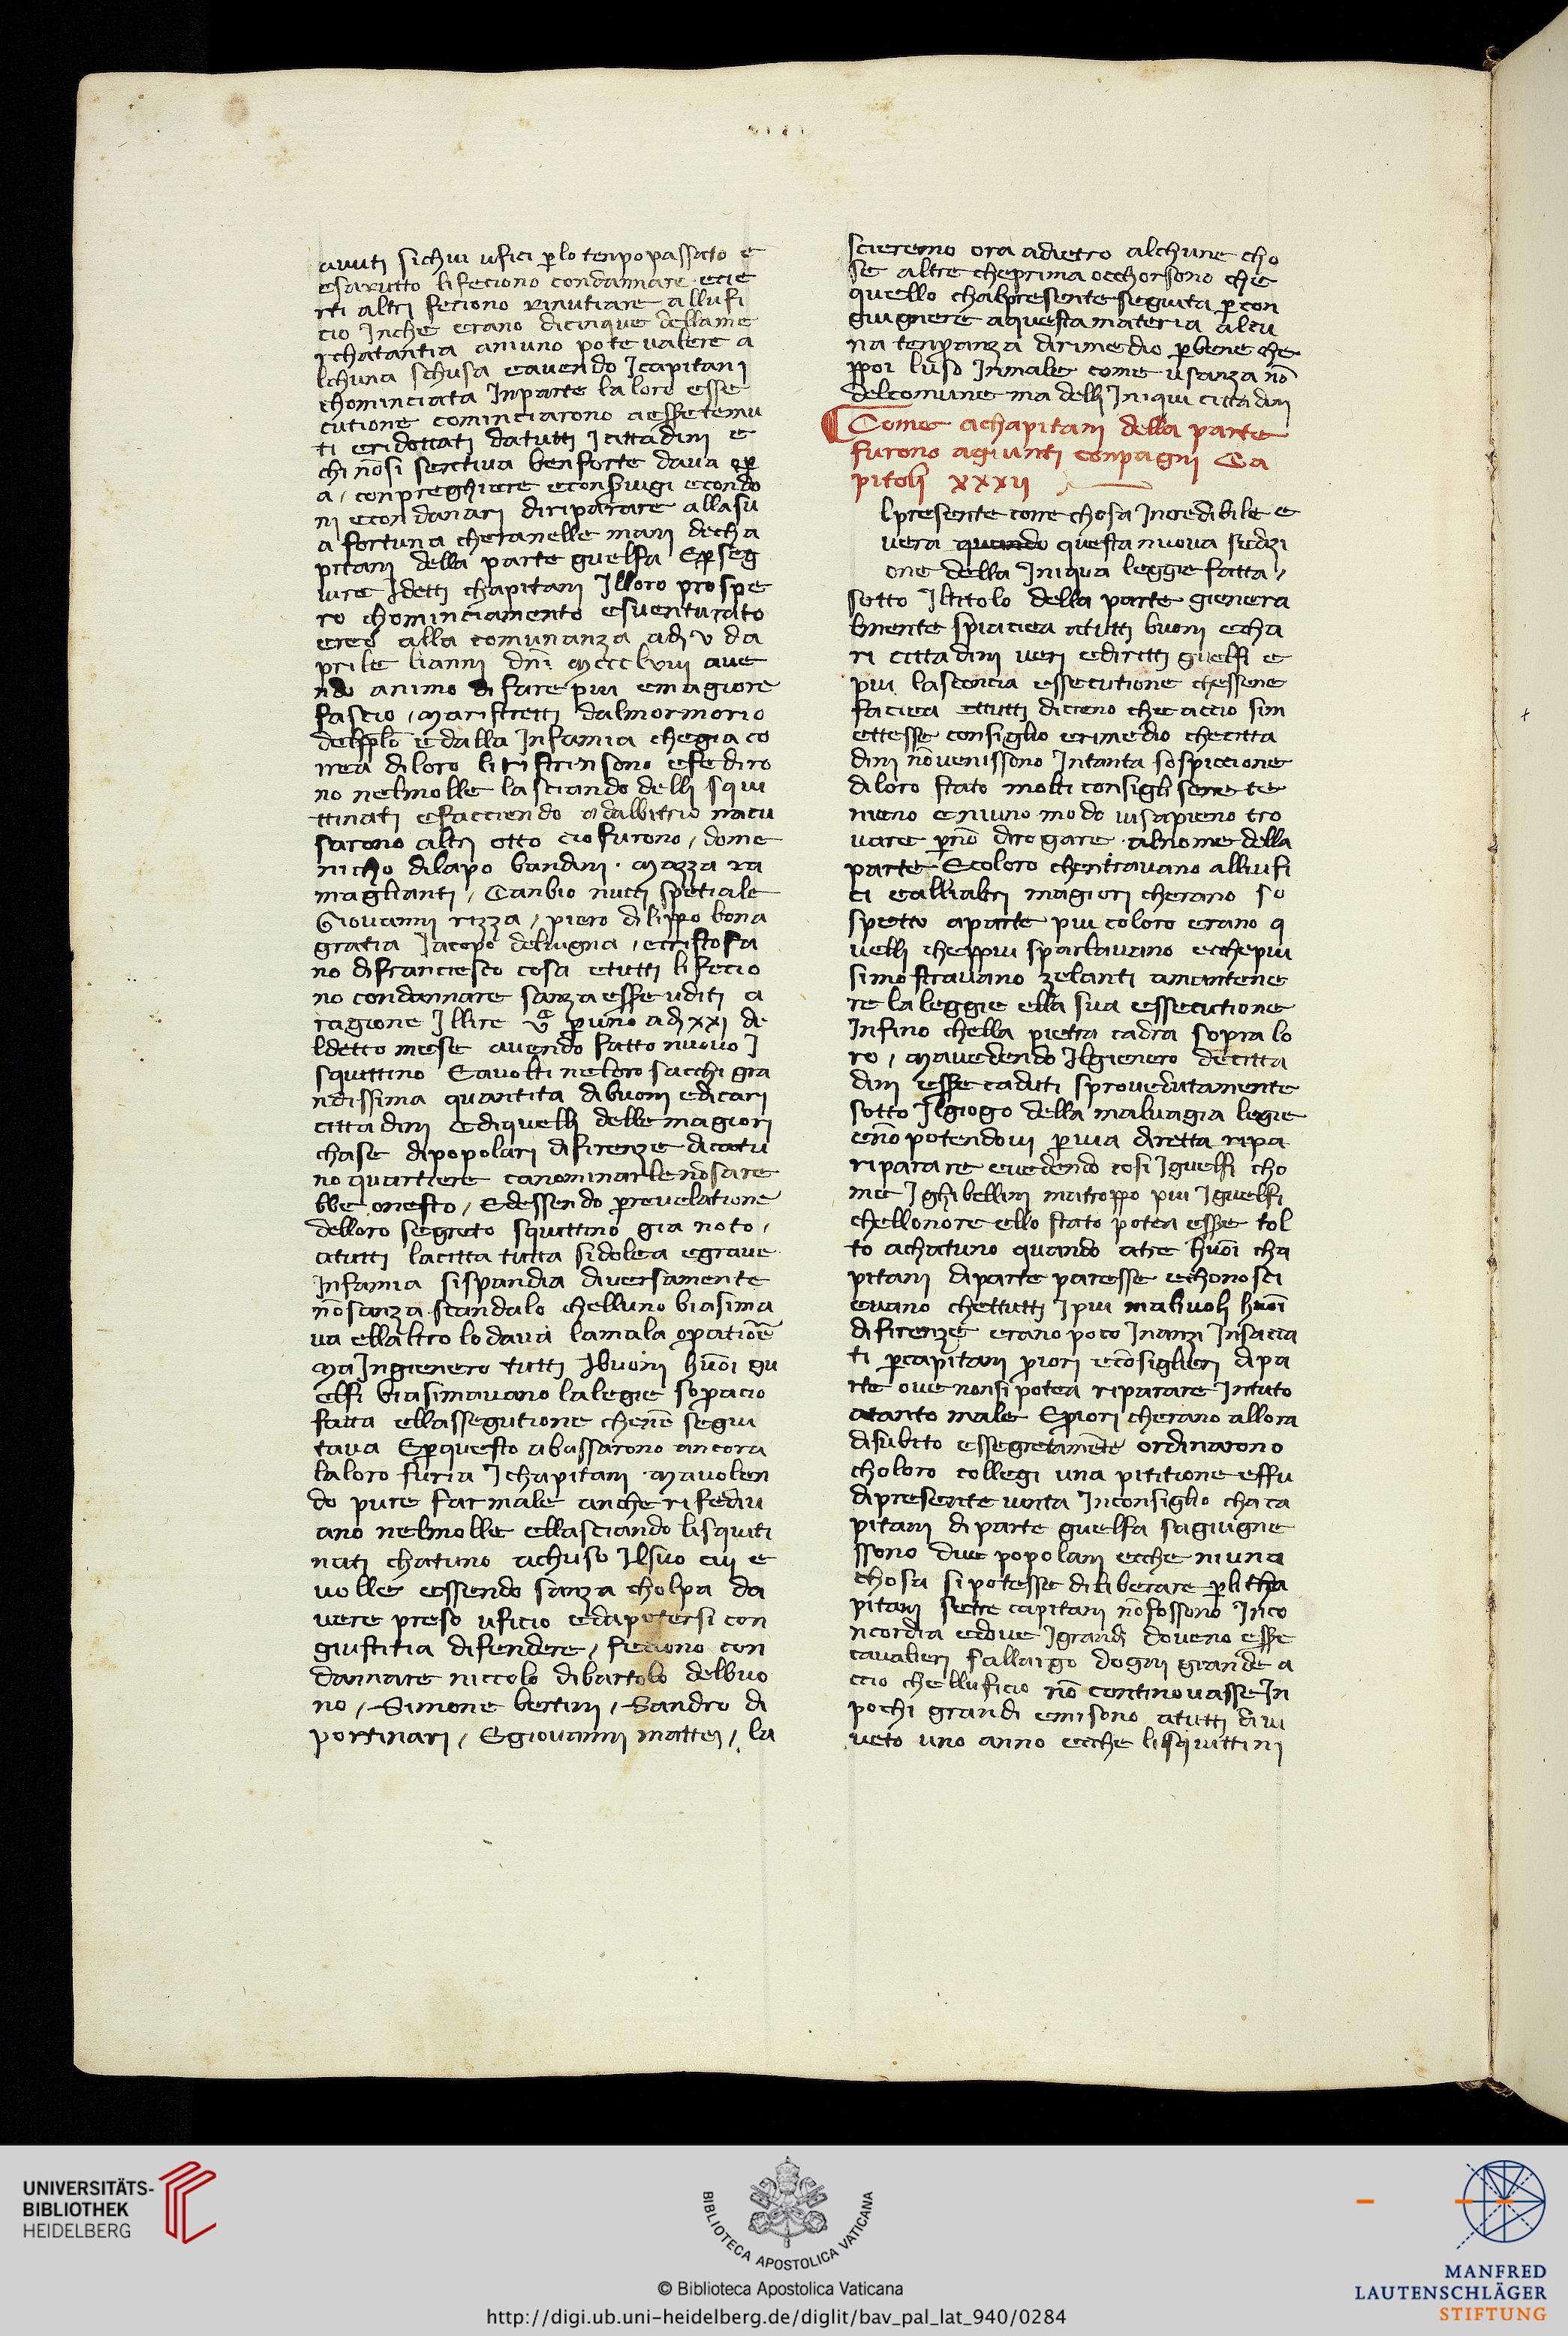 avuti sichuri ufici p̄ lo tenpo passato e
esarutto li feciono condannare ecie
rti altri feciono rinutiare allufi
cio inche erano dicinque dellame
rchatantia aniuno pote valere a
lchuna schusa eavendo Icapitani
chominciata inparte la loro esse
cutione cominciarono aesse temu
ti eridottati datutti Icittadini e
chi nōsi sentiva ben forte dava op̄
a / con preghiere econ servigi econdo
ni econ danari diriparare allasu
a fortuna cheranelle mani decha
pitani della parte guelfa E p̄ seg
uire Idetti chapitani Illoro prospe
ro chominciamento esventurato
ereo alla comunanza adi v da
prile lianni dñi Mccclviii ave
ndo animo di fare piu emagiore
fascio / Ma ristretti dalmormorio
delpplō edalla Infamia chegia co
rrea di loro li ristrinsono efediro
no nelmolle lasciando delli squi
ttinati efacciendo adalbitrio nacu
sarono altri otto cio furono / dome
nicho dilapo bandini · Mazza ra
maglianti / Canbio nucci spetiale
Giovanni rizza / piero dilippo bona
gratia Iacopo delvigna / ecristofa
no difranciesco cosa etutti li fecio
no condannare sanza esse uditi a
ragione Illire vᶜ p̄ uno adi xxi de
ldetto mese avendo fatto nuovo I
squittino Eavolti neloro sacchi gra
ndissima quantita dibuoni edicari
cittadini ediquelli delle magiori
chase dipopolari difirenze dicatu
no quartiere canominarle nōsare
bbe onesto / Edessendo p̄ revelatione
delloro segreto squittino gia noto /
atutti lacitta tutta sidolea egrave
Infamia sispandia diversamente
nō sanza scandalo chelluno biasima
va ellaltro lodava lamala op̄atiōe
Ma Ingienero tutti Ibuoni huōi gu
elfi biasimavano lalegie sop̄acio
fatta ellassegutione chenē segui
tava E p̄ questo abassarono ancora
la loro furia Ichapitani · Mavolen
do pure far male anche rifediu
ano nelmolle ellasciando lisquiti
nati chatuno achuso Ilsuo cui e
volle essendo sanza cholpa da
vere preso uficio edapotersi con
giustitia difendere / feciono con
dannare niccolo dibartolo delbuo
no / Simone bertini / Sandro di
portinari / Egiovanni mattei / la
scieremo ora adietro alchune cho
se altre cheprima occhorsono che
quello chalpresente seguita p̄ con
giugnere aquesta materia alcu
na tenpanza dirimedio p̄ bene che
ppoi luso Inmale come usanza nō
delcomune ma delli Iniqui cittadini
Come achapitani della parte
furono agiunti conpagni Ca
pitoli xxxii
lpresente come chosa Incredibile e
vera quando questa nuova sedizi
one della Iniqua leggie fatta /
sotto Iltitolo della parte gienera
lmente spiaciea atutti buoni echa
ri cittadini veri ediritti guelfi e
piu lasconcia essecutione chessene
faciea ettutti diceno che accio sim
ettesse consiglio erimedio checitta
dini nōvenissono Intanta sospiccione
diloro stato molti consigli sene te
nieno eniuno modo visapieno tro
vare p̄ nō dirogare alnome della
parte Ecoloro chentravano alliufi
ci ealliabri magiori cherano so
spetto aparte piu coloro erano q
uelli cheppiu sparlavano ecchepiu
simostravano zelanti amantene
re laleggie ella sua essecutione
Infino chella pietra cadra sopra lo
ro / Mavedendo Ilgienero decitta
dini esse caduti sprovedutamente
sotto Ilgiogo della malvagia legie
enō potendovi p̄ via diretta ripa
riparare evedendo cosi Iguelfi cho
me Ighibellini matroppo piu Iguelfi
chellonore ello stato potea esse tol
to achatuno quando atre huōi cha
pitani diparte paresse echonosci
evano chettutti Ipiu malivoli huōi
difirenze erano poco Inanzi Insacca
ti p̄ capitani p̄iori ecōsiglieri dipa
rte ove nonsi potea riparare Intuto
atanto male E p̄iori cherano allora
disubito essegretamēte ordinarono
choloro collegi una pititione effu
dipresente vinta Inconsiglio chaca
pitani diparte guelfa sagiugne
ssono due popolani ecche niuna
chosa sipotesse diliberare p̄ li cha
pitani setre capitani nōfossono Inco
ncordia edove Igrandi doveno esse
cavalieri fallargo dogni grande a
ccio chelluficio nō continovasse In
pochi grandi emisono atutti divi
veto uno anno ecche lisquittini
UNIVERSITÄTS-
BIBLIOTHEK
HEIDELBERG
BIBLIOTECA APOSTOLICA VATICANA
© Biblioteca Apostolica Vaticana
http://digi.ub.uni-heidelberg.de/diglit/bav_pal_lat_940/0284
MANFRED
LAUTENSCHLÄGER
STIFTUNG